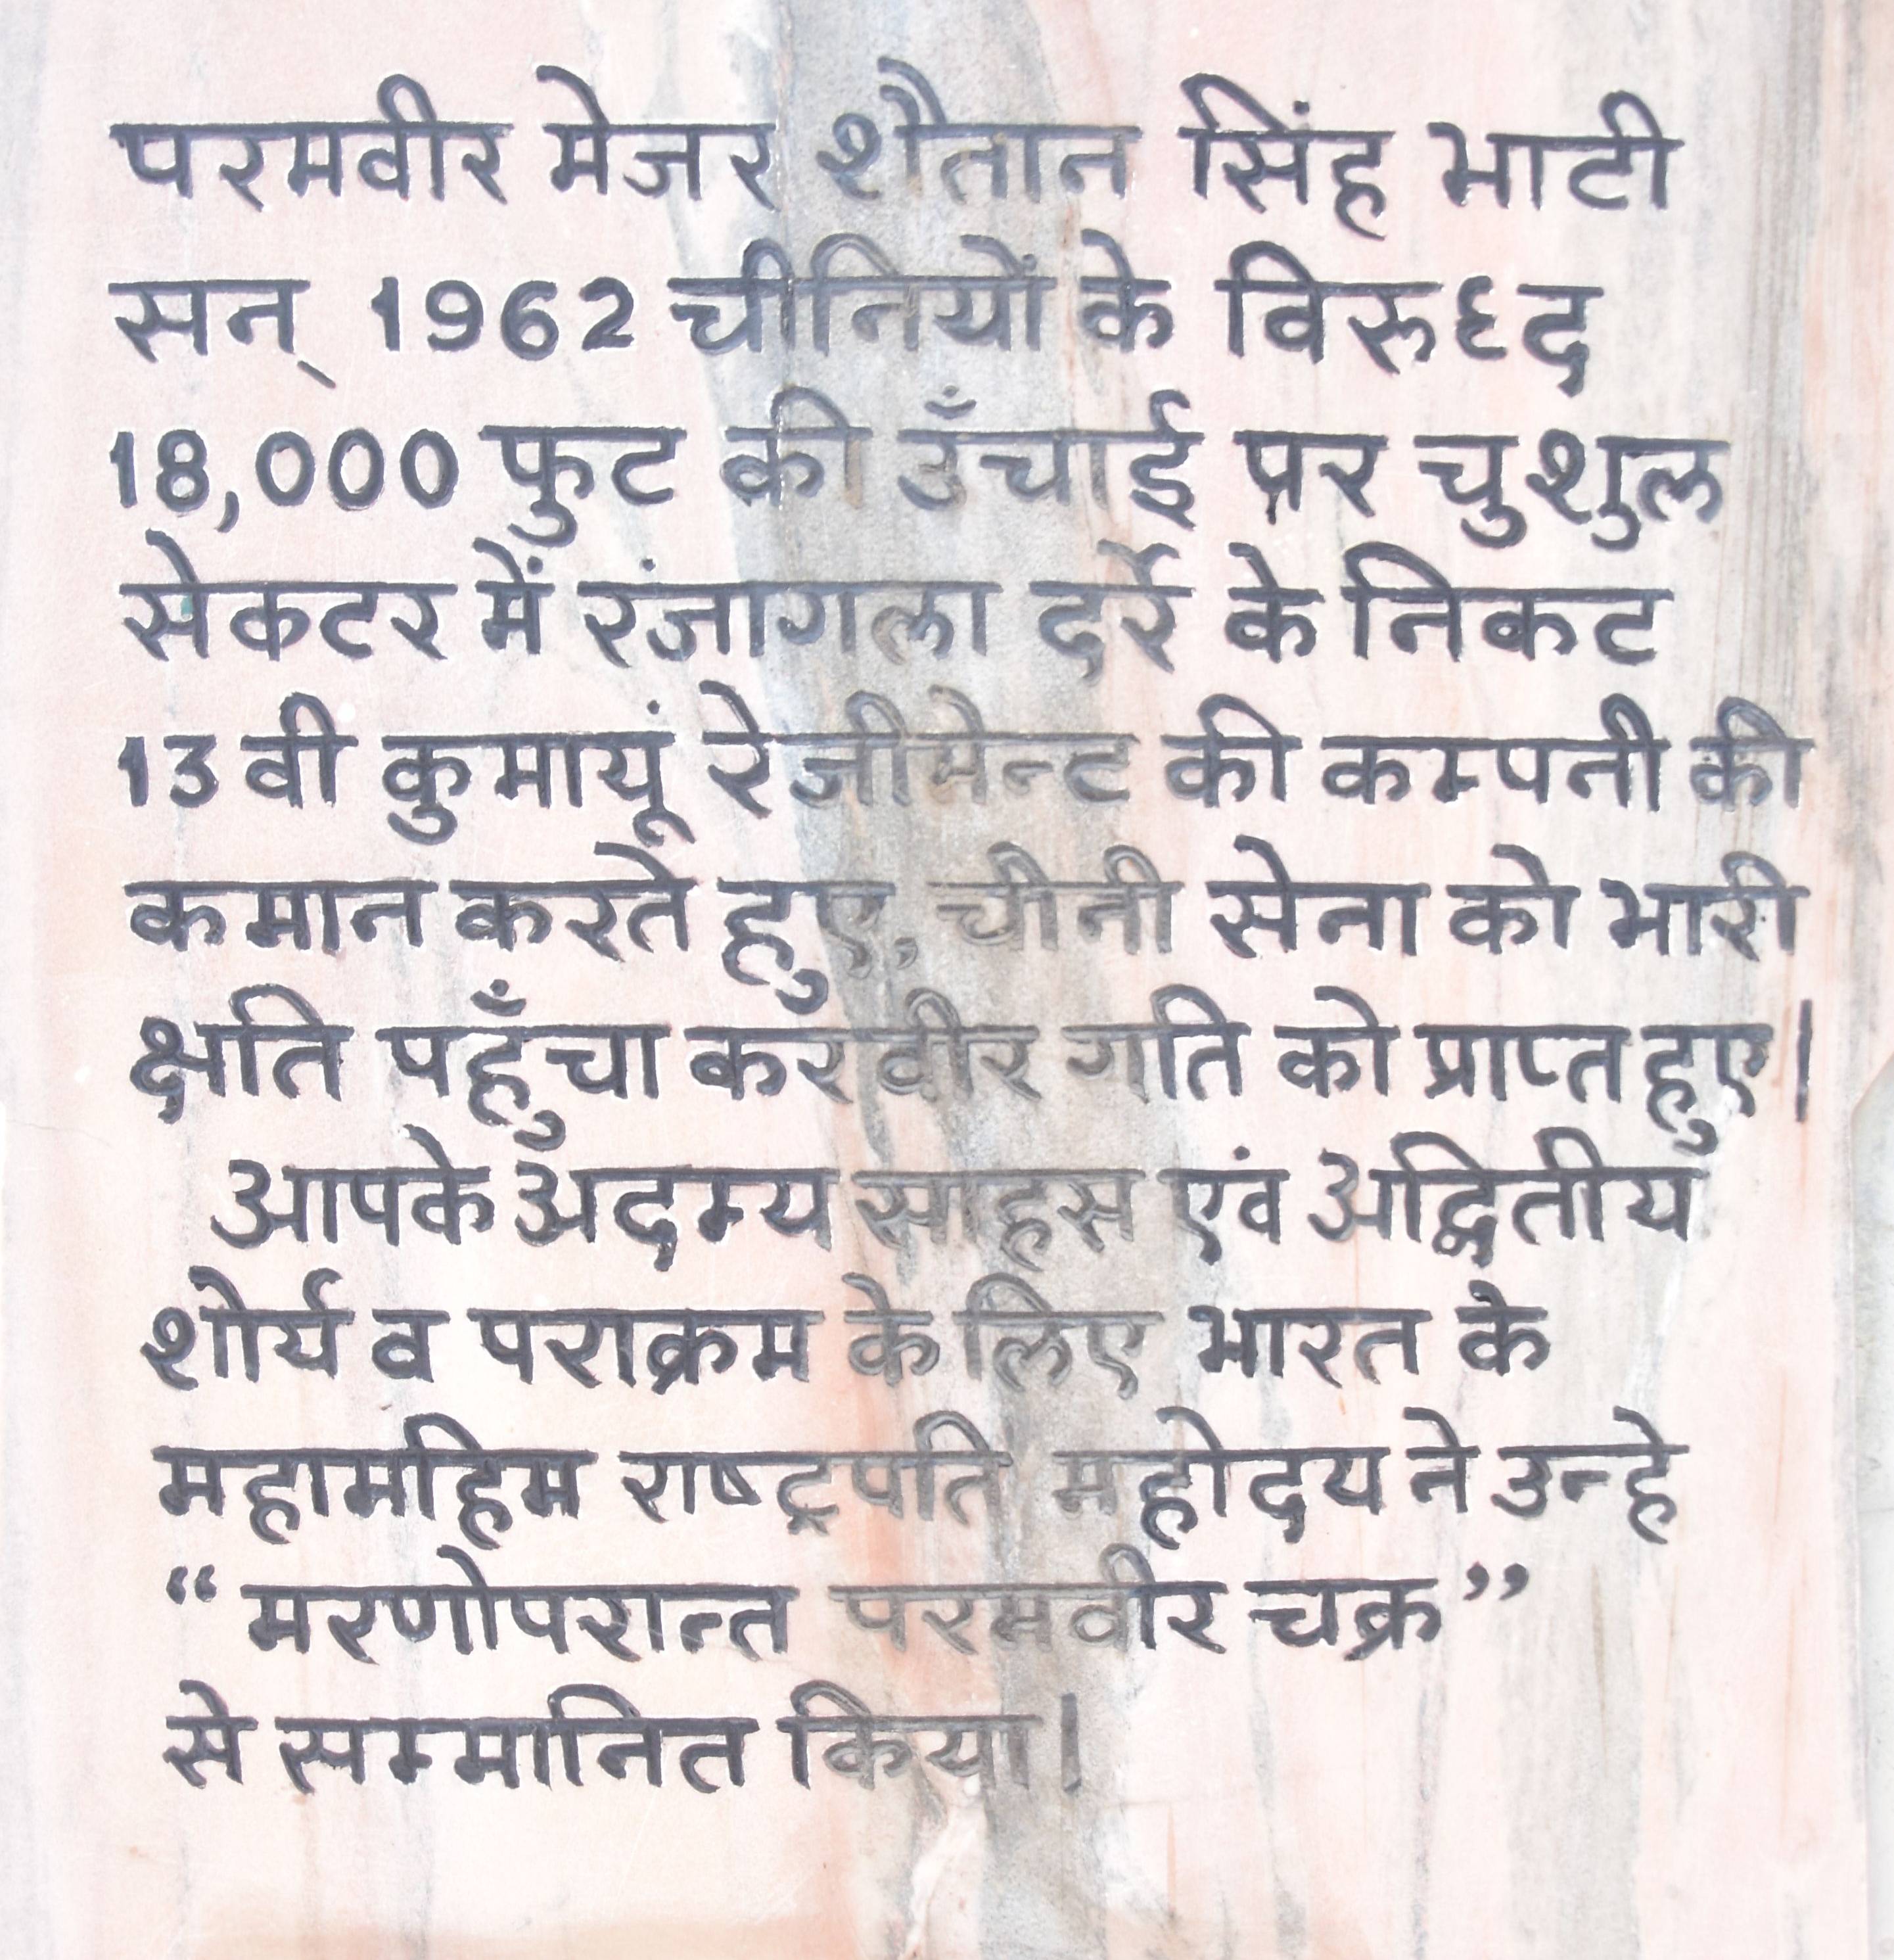 परमवीर मेजर शैतान सिंह भाटी
सन् 1962 चीनियों के विरुध्द
18,000 फुट की उँचाई पर चुशुल
सेकटर में रंजागला दर्रे के निकट
13 वी कुमायूं रेजीमेन्ट की कम्पनी की
कमान करते हुए, चीनी सेना को भारी
क्षति पहुँचा कर वीर गति को प्राप्त हुए।
आपके अदम्य साहस एंव अद्वितीय
शोर्य व पराक्रम के लिए भारत के
महामहिम राष्ट्रपति महोदय ने उन्हे
“मरणोपरान्त परमवीर चक्र”
से सम्मानित किया।